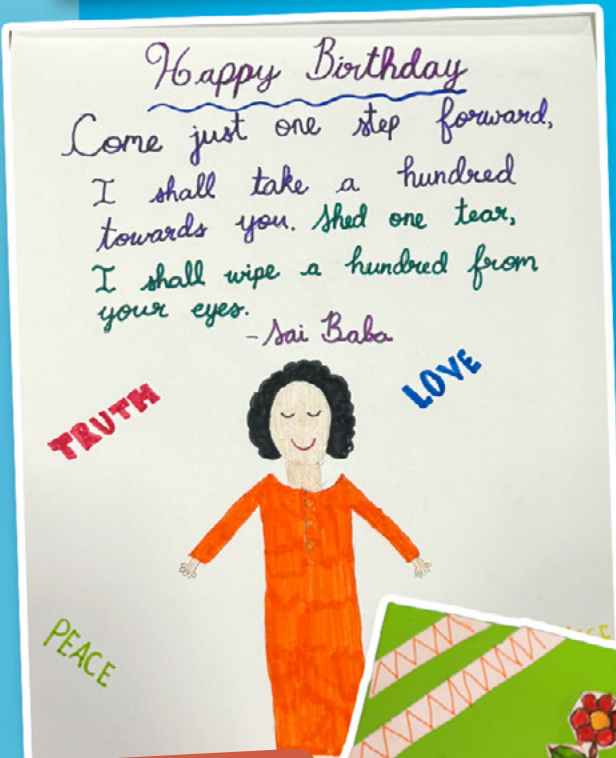 Happy Birthday
Come just one step forward,
I shall take a hundred
towards you. Shed one tear,
I shall wipe a hundred from
your eyes.
-Sai Baba
TRUTH
LOVE
PEACE